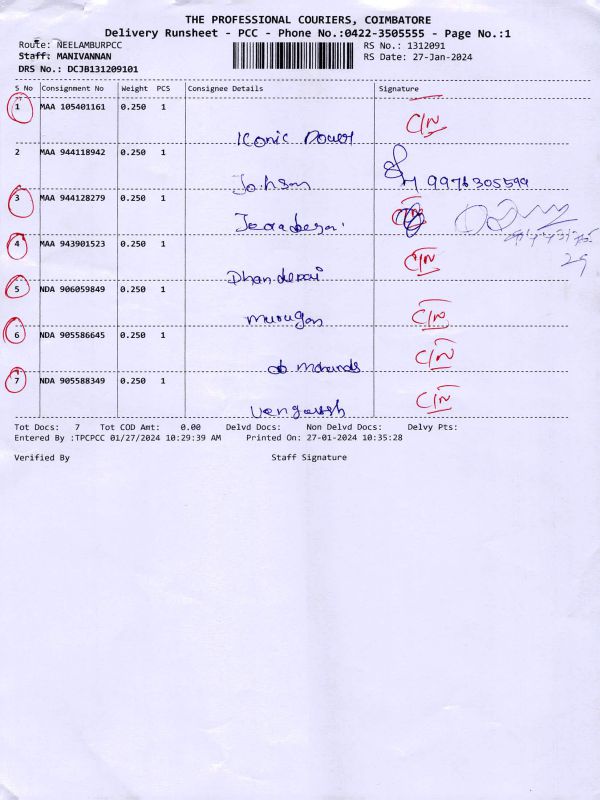 THE PROFESSIONAL COURIERS, COIMBATORE
Delivery Runsheet - PCC - Phone No.:0422-3505555 - Page No.:1
Route: NEELAMBURPCC RS No.: 1312091
Staff: MANIVANNAN RS Date: 27-Jan-2024
DRS No.: DCJB131209101
S No Consignment No Weight PCS Consignee Details Signature
1 MAA 105401161 0.250 1
Iconic Power C/N
2 MAA 944118942 0.250 1
Johson 9976305599
3 MAA 944128279 0.250 1
C/N
4 MAA 943901523 0.250 1
C/N
5 NDA 906059849 0.250 1
Murugan C/N
6 NDA 905586645 0.250 1
C/N
7 NDA 905588349 0.250 1
C/N
Tot Docs: 7 Tot COD Amt: 0.00 Delvd Docs: Non Delvd Docs: Delvy Pts:
Entered By :TPCPCC 01/27/2024 10:29:39 AM Printed On: 27-01-2024 10:35:28
Verified By Staff Signature